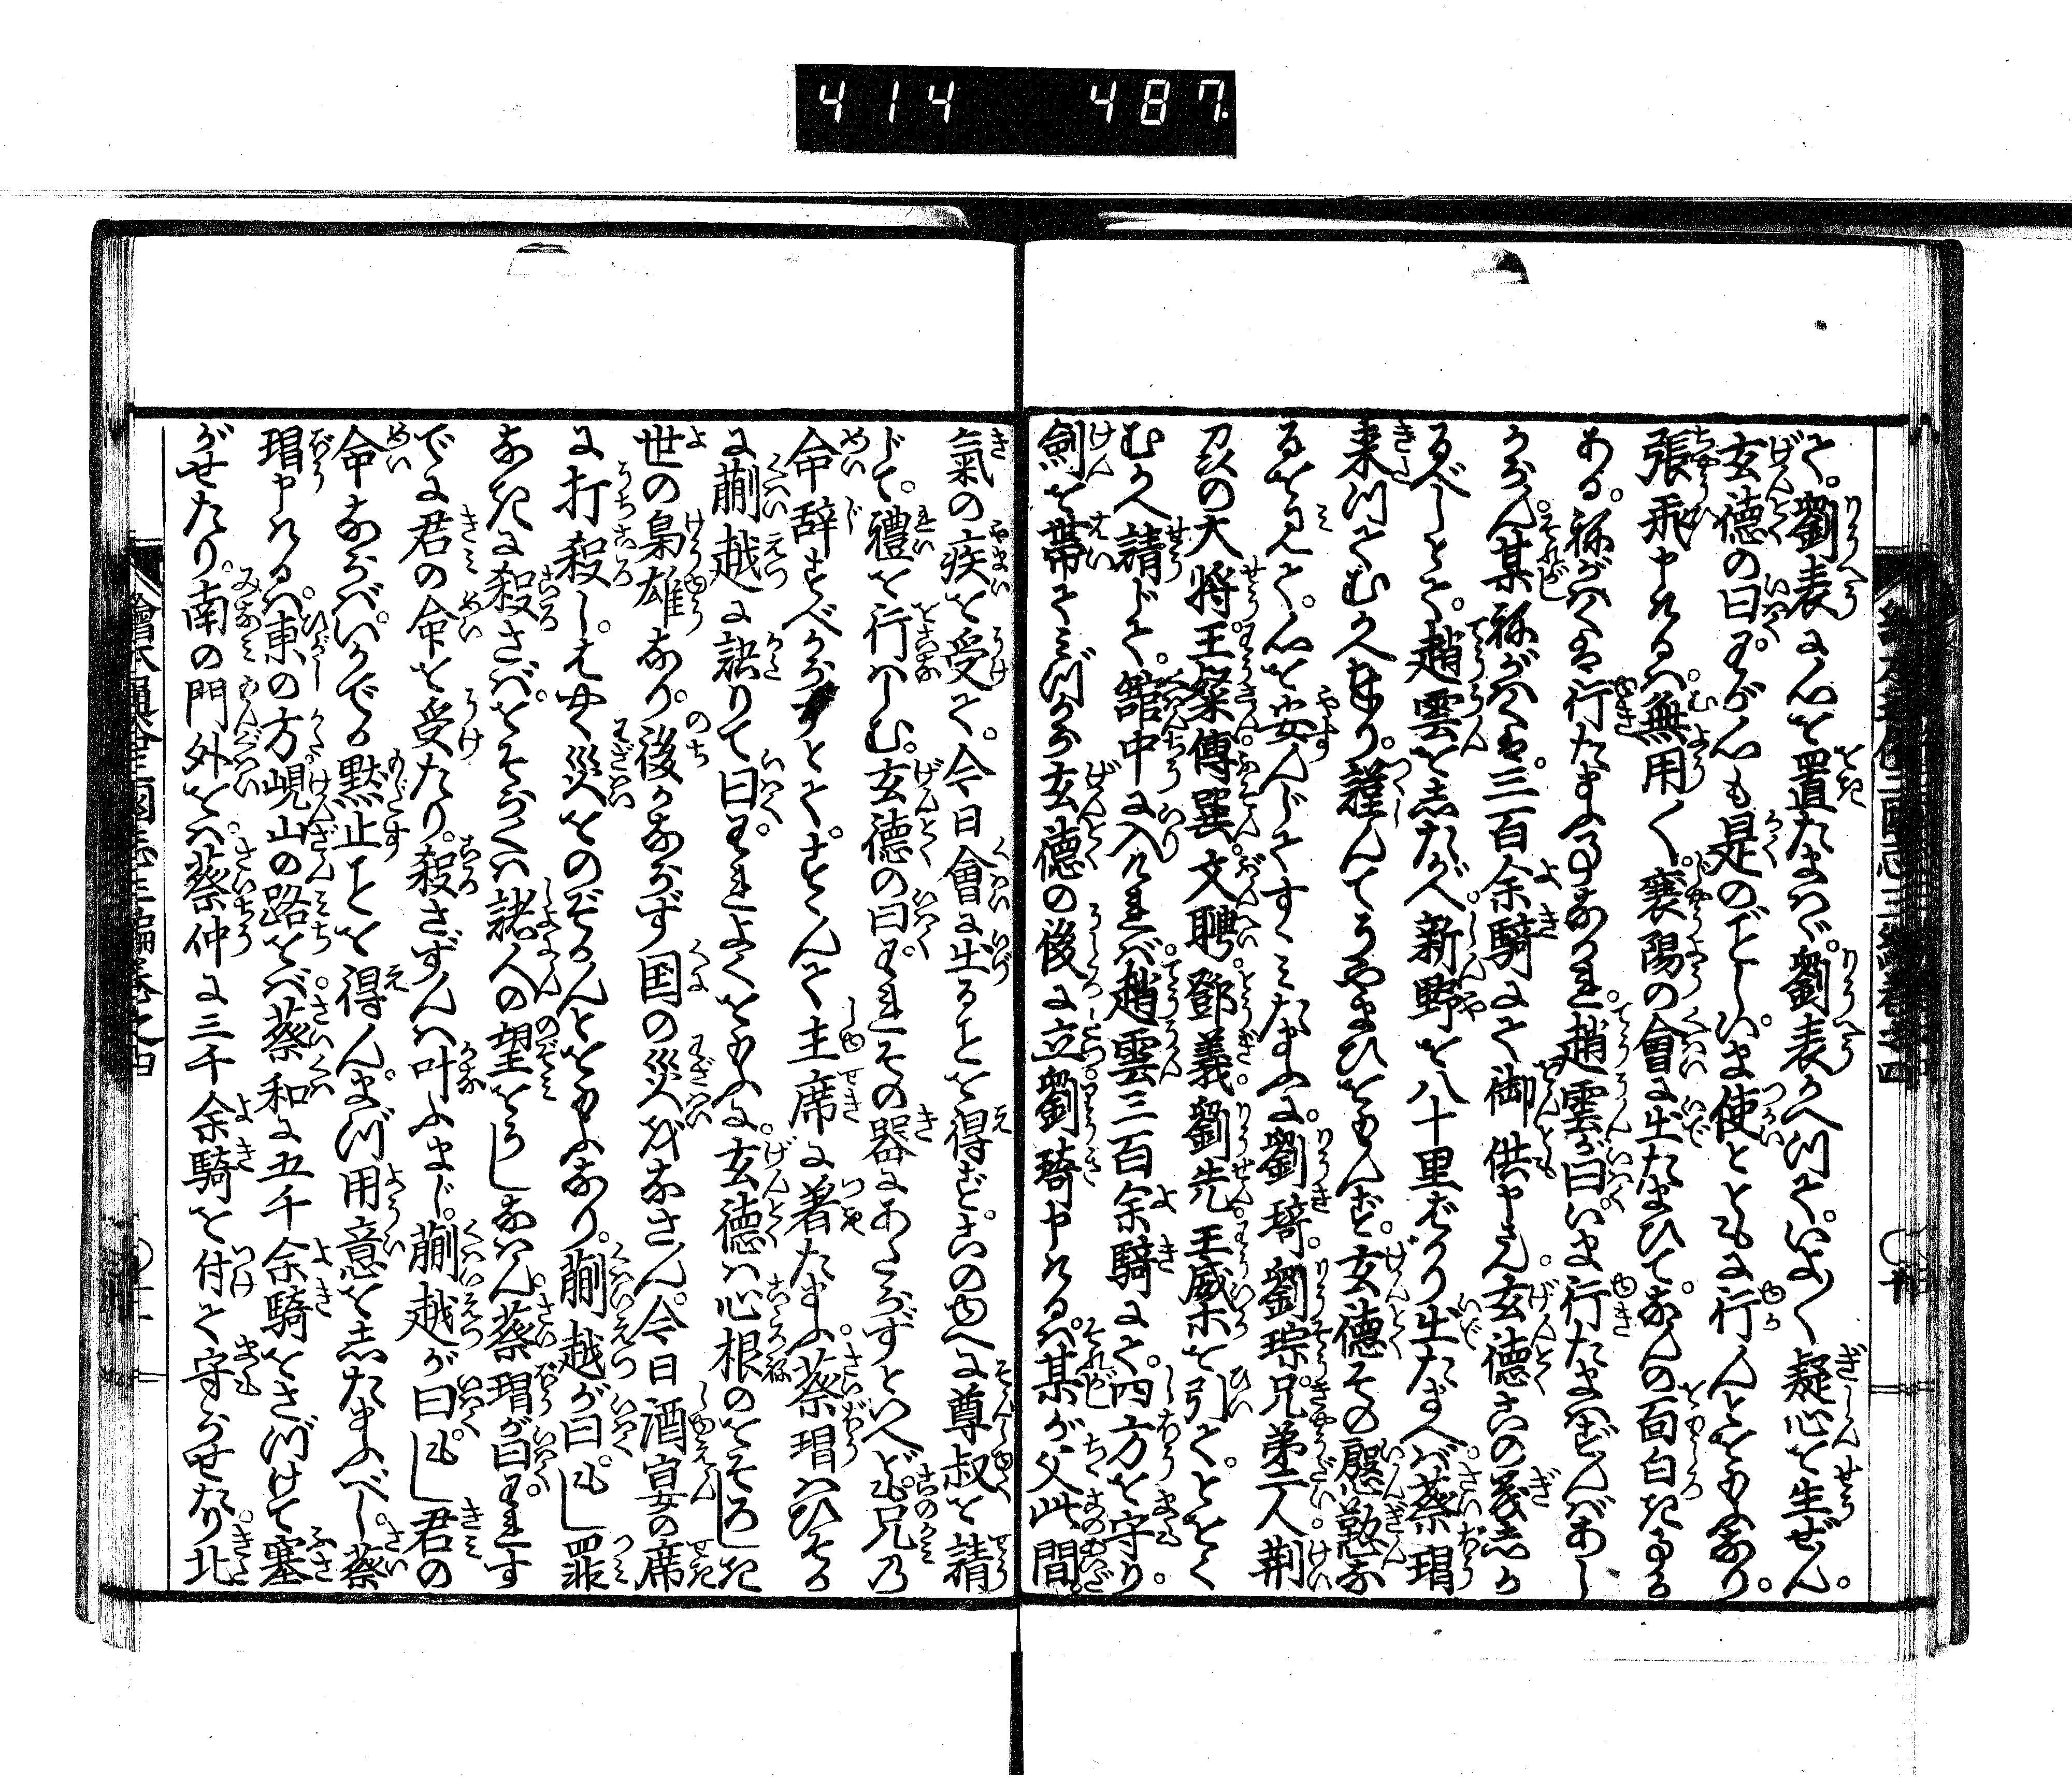 414 487
て。劉表に心を置たまはゞ。劉表かへつて。いよ〱疑心を生ぜん。
玄德の曰。わが心も是のごとし。いま使とともに行んとをもふなり。
張飛申けるハ。無用〱。襄陽の會に出たまひて。なんの面白きる
ある。稱がはくは行たまふ事なかれ。趙雲が曰。いま行たまはずんばあし
かなん。某稱がはくは。三百余騎にて御供申さん。玄德この義しか
るべしとて。趙雲をしたがへ。新野を八十里ばかり出たまへバ。蔡瑁
来つてむかへ奉り。謹んてうやまひをもんず。玄德その慇懃な
るを見て。心を安んじてすゝみたまふに。劉琦。劉琮。兄弟二人。荊
刕の大將。王粲。傅巽。文聘。鄧義。劉先。王威ホを引て。とをく
むかへ請じて。館中に入けれバ。趙雲三百余騎にて。四方を守り。
劍を帶てミづから玄德の後に立。劉琦申けるハ。某が父此間
氣の疾を受て。今日會に出ることを得ず。このゆへに尊叔を請
じて。禮を行ハしむ。玄德の曰。われその器にあらずといへども。兄乃
命辞すべからずとて。すゝんて主席に著たまふ。蔡瑁ハひそか
に蒯越に訣りて曰。われよくをもふに。玄德ハ心根のをそろしき
世の梟雄なり。後かならず国の災をなさん。今日酒宴の席
に打殺し。はやく災をのぞかんとをもふなり。蒯越が曰。もし罪
なきに殺さば。をそらくハ諸人の望をうしなはん。蔡瑁が曰。われす
でに君の命を受たり。殺さずんハ叶ふまじ。蒯越が曰。もし君の
命ならば。いかでか黙止ことを得ん。まづ用意をしたまふべし。蔡
瑁申けるハ。東の方峴山の路をば。蔡和に五千余騎をさづけて塞
がせたり。南の門外をハ。蔡仲に三千余騎を付て守らせたり。北
繪本通俗三國志三編卷之四